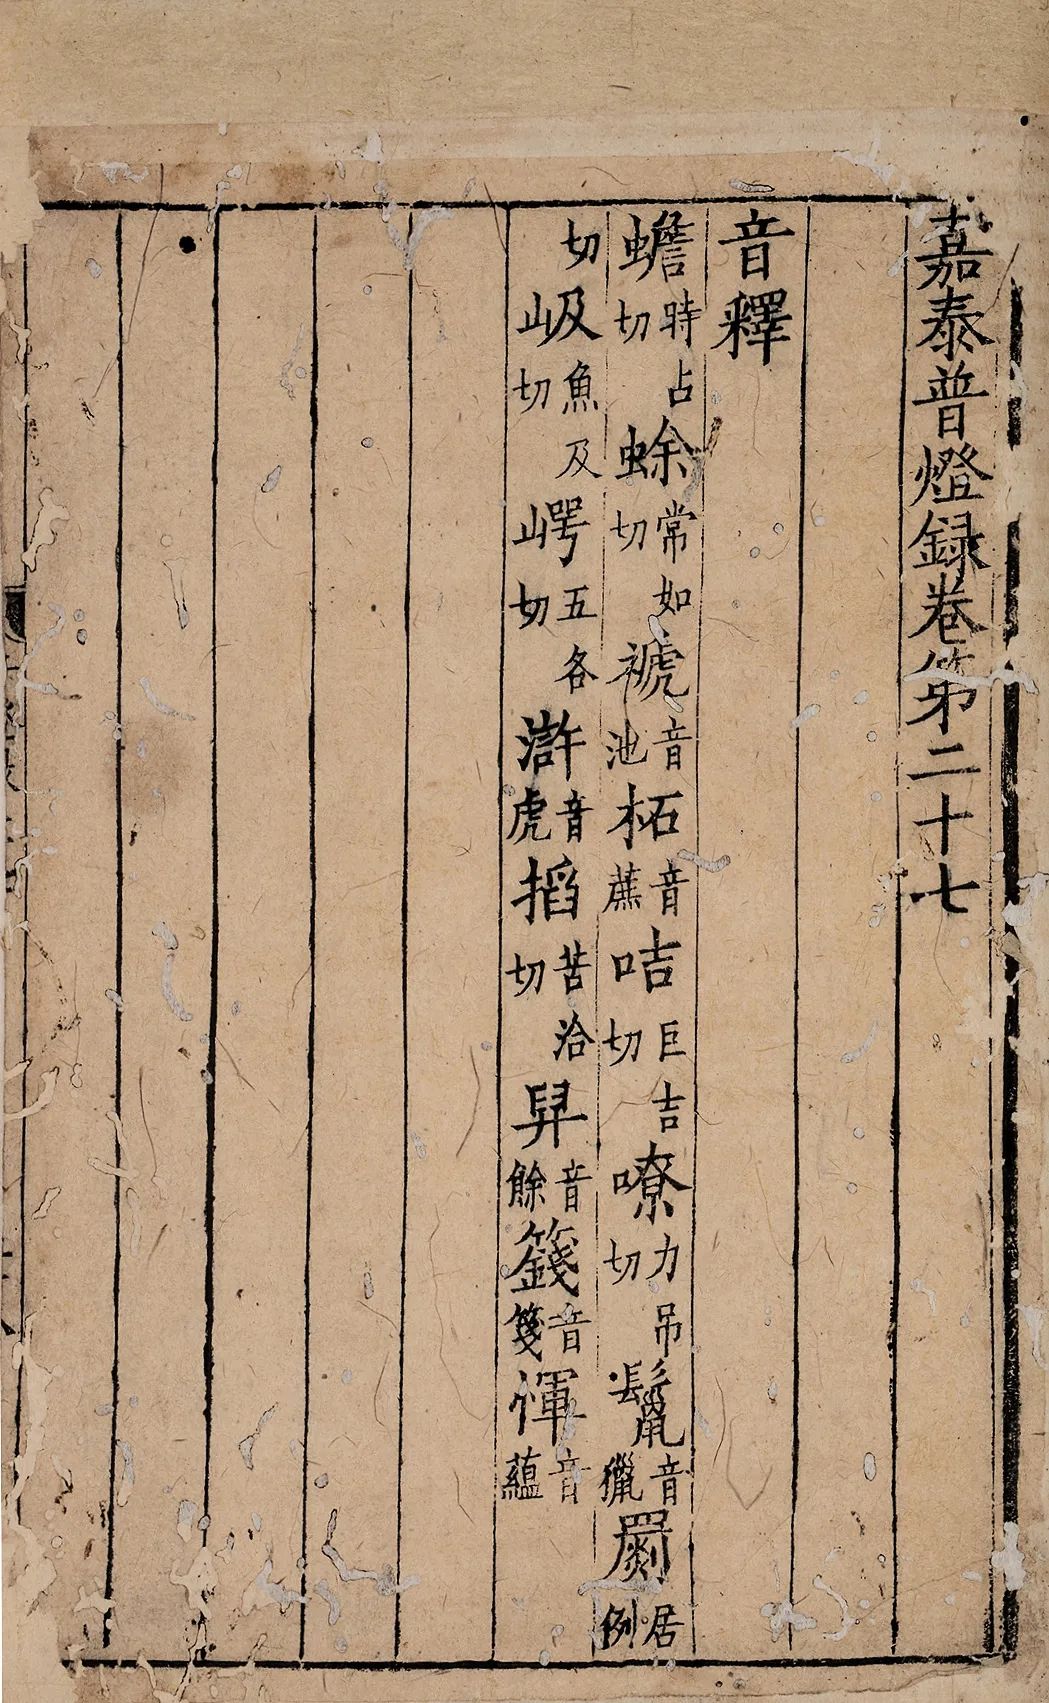 嘉泰普燈録卷第二十七
音釋
蟾時占切蜍常如切褫音池柘音蔗咭巨吉切嘹力吊切鬣音獵罽居例
切岋魚及切崿五各切滸音虎掐苦洽切舁音餘籛音箋惲音蘊